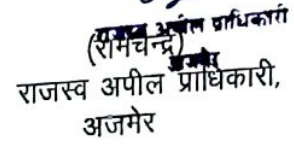 राजस्व अपील प्राधिकारी
(रामचन्द्र)
अजमेर
राजस्व अपील प्राधिकारी,
अजमेर